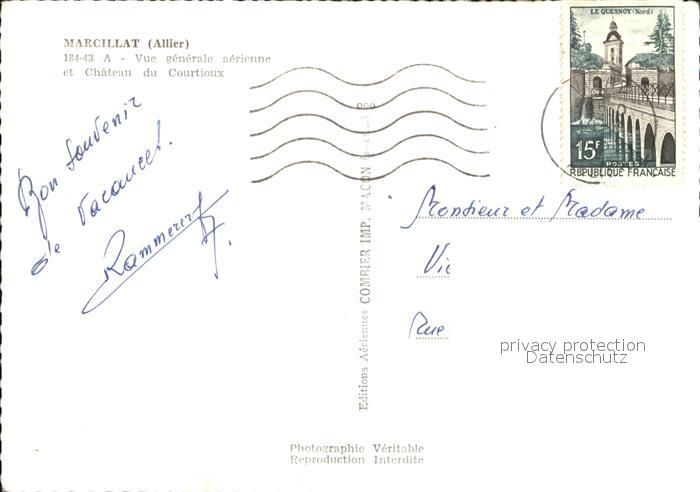 MARCILLAT (Allier)
184-43 A - Vue générale aérienne
et Château du Courtioux
Bon Souvenir
de Vacances.
LE QUESNOY (Nord)
15F
POSTES
REPUBLIQUE FRANÇAISE
Monsieur et Madame
Vic
Rue
privacy protection
Datenschutz
Editions Aériennes COMBIER IMP. MACON
Photographie Véritable
Reproduction Interdite